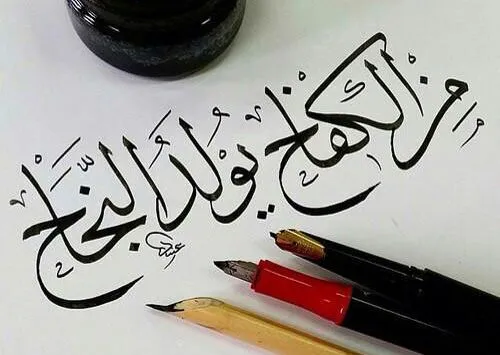 من الكفاح يولدُ النّجاح